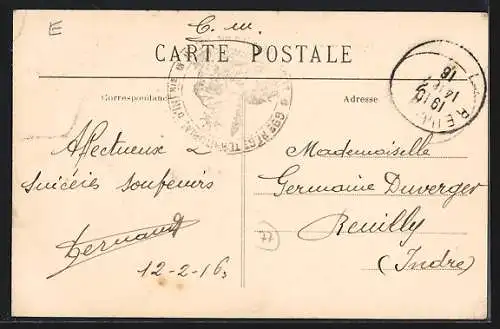 E
C. m.
CARTE POSTALE
Correspondance
Adresse
Affectueux &
sincères souvenirs
Fernand
12-2-16
Mademoiselle
Germaine Duverger
Reuilly
(Indre)
77